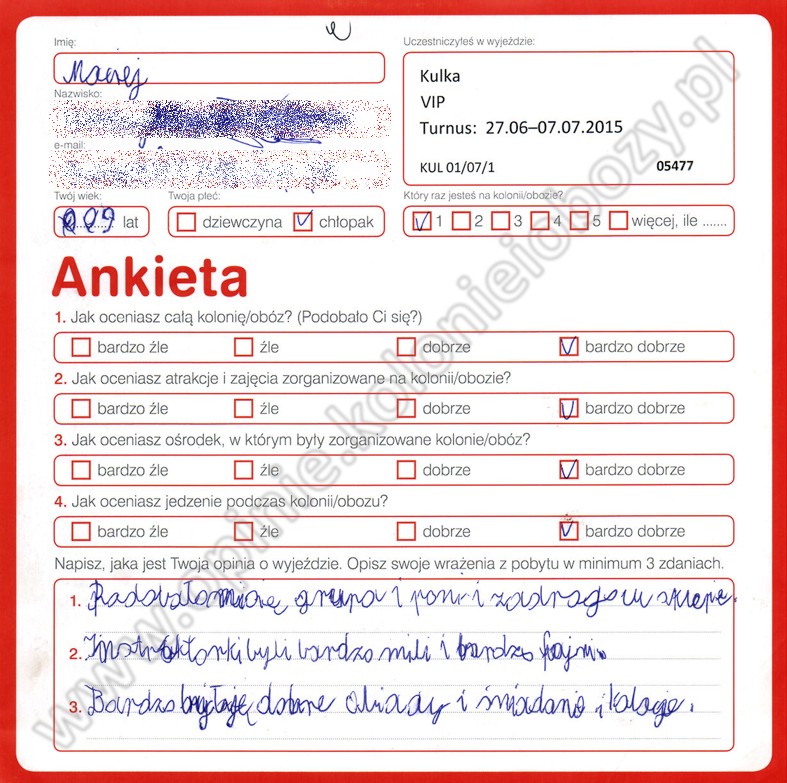 Imię:
Uczestniczyłeś w wyjeździe:
Maciej
Kulka
VIP
Turnus: 27.06–07.07.2015
KUL 01/07/1 05477
Nazwisko:
e-mail:
Twój wiek:
Twoja płeć:
Który raz jesteś na kolonii/obozie?
9 lat
dziewczyna chłopak
1 2 3 4 5 więcej, ile .......
Ankieta
1. Jak oceniasz całą kolonię/obóz? (Podobało Ci się?)
bardzo źle źle dobrze bardzo dobrze
2. Jak oceniasz atrakcje i zajęcia zorganizowane na kolonii/obozie?
bardzo źle źle dobrze bardzo dobrze
3. Jak oceniasz ośrodek, w którym były zorganizowane kolonie/obóz?
bardzo źle źle dobrze bardzo dobrze
4. Jak oceniasz jedzenie podczas kolonii/obozu?
bardzo źle źle dobrze bardzo dobrze
Napisz, jaka jest Twoja opinia o wyjeździe. Opisz swoje wrażenia z pobytu w minimum 3 zdaniach.
1. grupa i zadrago w sklepie.
2. Instruktorki byli bardzo mili i bardzo fajni.
3. Bardzo dobre obiady i śniadano i kolacje.
www.opinie.kolonieiobozy.pl